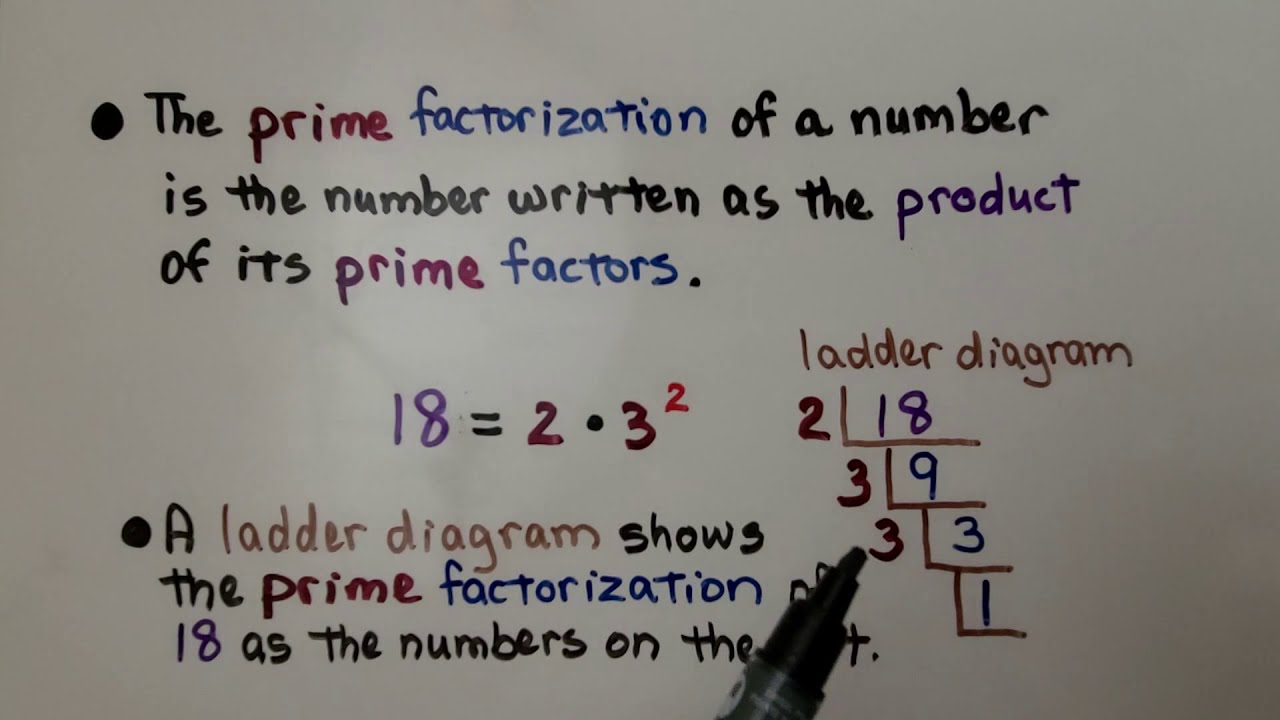 • The prime factorization of a number
is the number written as the product
of its prime factors.
ladder diagram
18 = 2 • 3²
2 18
3 9
3 3
1
• A ladder diagram shows
the prime factorization
18 as the numbers on the